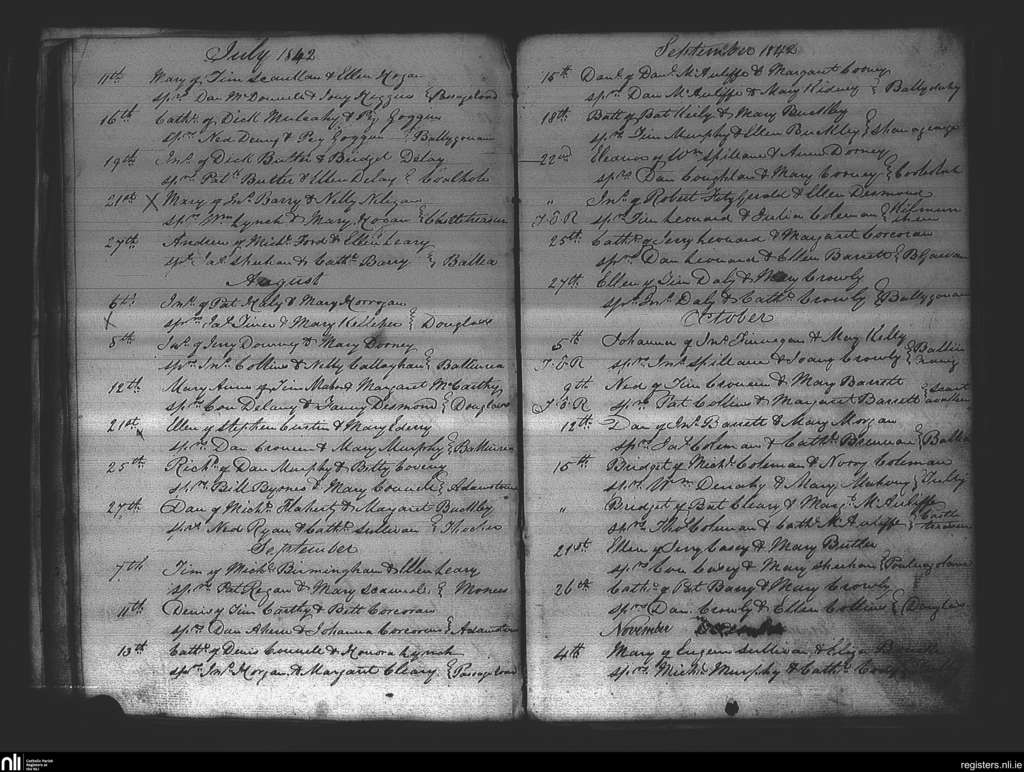 July 1842
11th Mary of Tim Scanllan & Ellen Hogan
sprs Dan McDonnell & Joney Higgins
16th Cathe of Dick Mulcahy & Peg Goggin
sprs Ned Deney & Peg Goggin Ballygarvan
19th Jno of Dick Butler & Bridget Delay
sprs Patk Butler & Ellen Delay Coulhole
21st X Mary of Jno Barry & Nelly Niligan
sprs Wm Lynch & Mary Hogan
27th Andrew of Michl Ford & Ellen Leary
sprs Jas Sheehan & Cathe Barry Ballea
August
6th Jno of Pat Haly & Mary Horrogan
X sprs Jas & Mary Kelleher Douglass
8th Jno of Jerry Downey & Mary Dorney
sprs Jno Collins & Nelly Callaghan Ballinrea
12th Mary Anne of Tim & Margaret McCarthy
sprs Con Delany & Fanny Desmond Douglass
21st Ellen of Stephen Curtin & Mary Ederry
sprs Dan Cronin & Mary Murphy Ballinrea
25th Richd of Dan Murphy & Betty Coveny
sprs Bill Byrnes & Mary Connell Adamstown
27th Dan of Michl Flaherty & Margaret Buckley
sprs Ned Ryan & Cathe Sullivan
September
7th Tim of Michl Birmingham & Ellen Leary
sprs Pat Regan & Mary Scannell Monees
11th Denis of Tim Carthy & Bett Corcoran
sprs Dan Ahern & Johanna Corcoran Adamstown
13th Cathe of Denis Connell & Honora Lynch
sprs Jno Horgan & Margaret Cleary Passage Road
September 1842
15th Danl of Danl McAuliffe & Margaret Cooney
sprs Dan McAuliffe & Mary Kidney Ballyduhy
18th Batt of Bat Keily & Mary Buckley
sprs Tim Murphy & Ellen Buckley
22nd Eleanor of Wm Spillane & Anne Dorney
sprs Dan Coughlan & Mary Cooney
" Jno of Robert Fitzgerald & Ellen Desmond
J.E.R sprs Tim Leonard & Julian Coleman
25th Cathe of Jerry Leonard & Margaret Corcoran
sprs Dan Leonard & Ellen Barrett BGarvan
27th Ellen of Tim Daly & Mary Crowly
sprs Jno Daly & Cathe Crowly Ballygarvan
October
5th Johanna of Jno Finnegan & Mary Kelly
J.E.R sprs Jno Spillane & Joany Crowly
9th Ned of Tim Cronin & Mary Barrett
J.E.R sprs Pat Collins & Margaret Barrett
12th Dan of Jno Barrett & Mary Morgan
sprs Jas Coleman & Cathe Ballea
15th Bridget of Michl Coleman & Norry Coleman
sprs Wm & Mary Mahony
" Bridget of Bat Cleary & Margt McAuliffe
sprs Thos Coleman & Cathe McAuliffe Castle
21st Ellen of Jerry Casey & Mary Butler
sprs Con Casey & Mary Sheehan
26th Cathe of Pat Barry & Mary Crowly
sprs Dan Crowly & Ellen Collins Douglass
November
4th Mary of Eugene Sullivan & Eliza
sprs Michl Murphy & Cathe
nli
Catholic Parish
Registers at
the NLI
registers.nli.ie